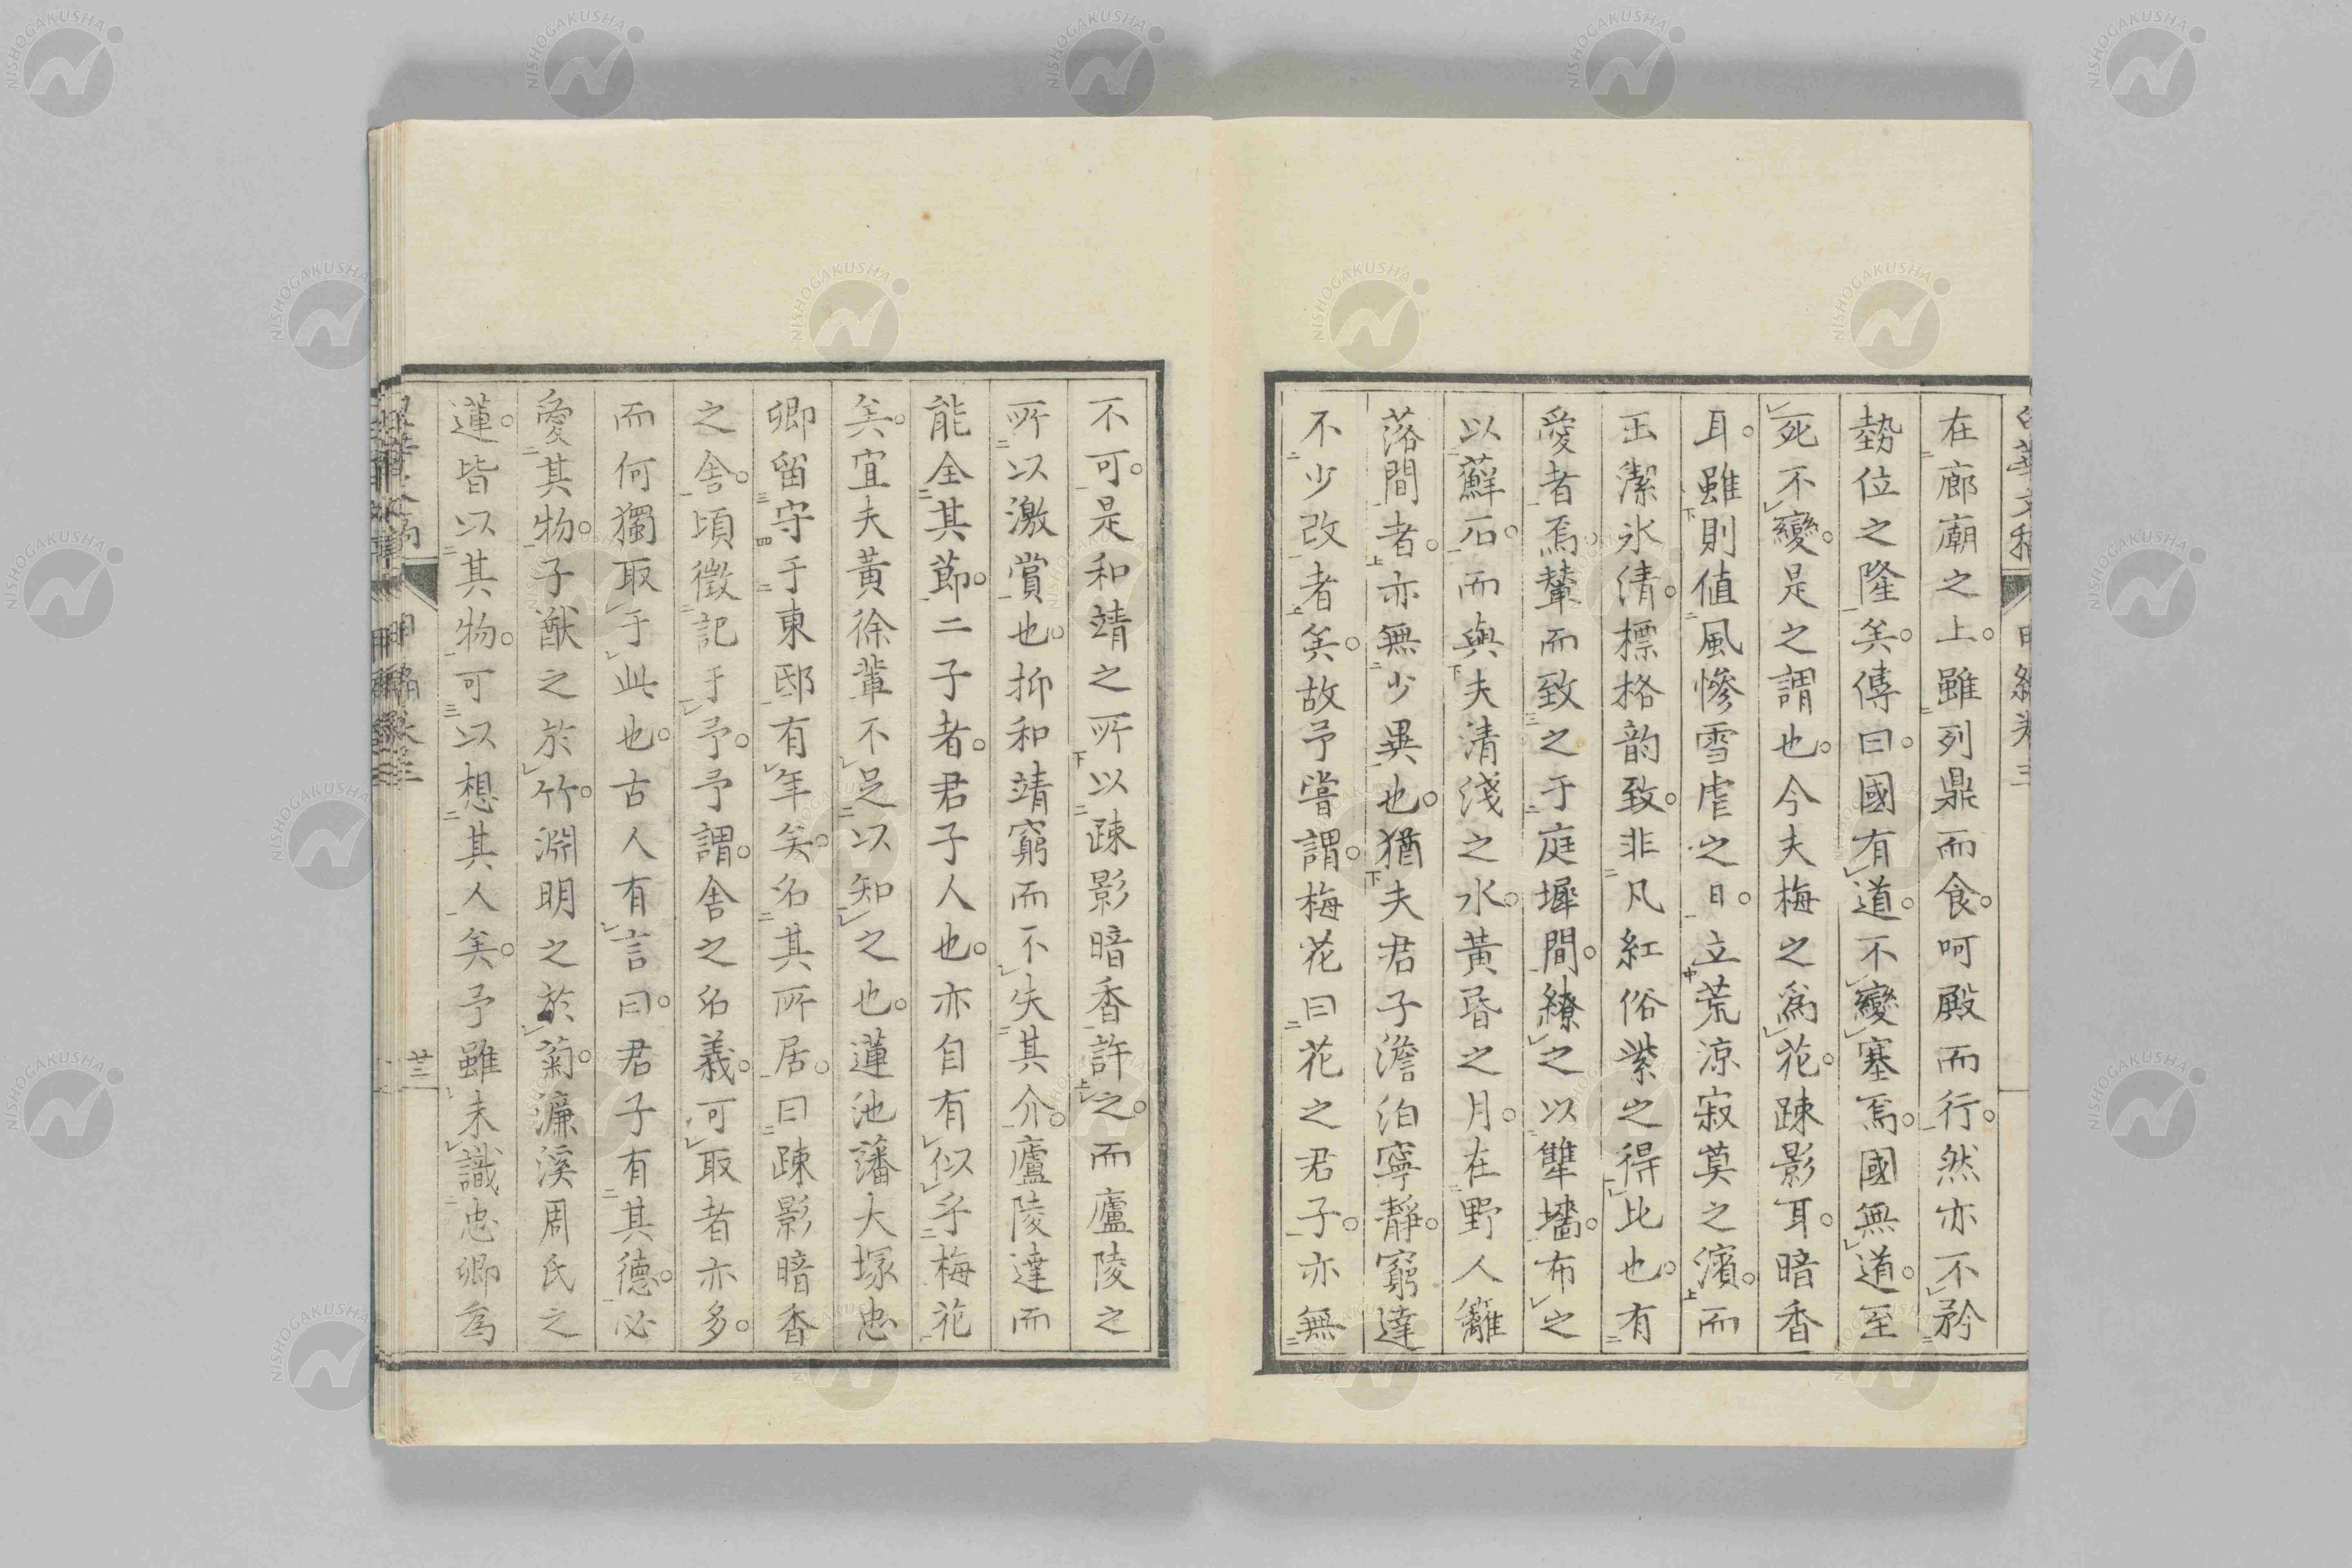 在廊廟之上。雖列鼎而食。呵殿而行。然亦不矜
勢位之隆矣。傳曰。國有道。不變塞焉。國無道。至
死不變。是之謂也。今夫梅之爲花。踈影耳。暗香
耳。雖則値風慘雪虐之日。立荒凉寂莫之濱。而
玉潔氷清。標格韵致。非凡紅俗紫之得比也。有
愛者焉。輦而致之于庭墀間。繚之以雙墻。布之
以蘚石。而與夫清淺之水。黃昏之月。在野人籬
落間者。亦無少異也。猶夫君子澹泊寧靜。窮達
不少改者矣。故予嘗謂。梅花曰花之君子。亦無
不可。是和靖之所以踈影暗香許之。而廬陵之
所以激賞也。抑和靖窮而不失其介。廬陵達而
能全其節。二子者。君子人也。亦自有似乎梅花
矣。宜夫黃徐輩不足以知之也。蓮池藩大塚忠
卿留守于東邸有年矣。名其所居。曰踈影暗香
之舍。頃徵記于予。予謂。舍之名義。可取者亦多。
而何獨取于此也。古人有言曰。君子有其德。必
愛其物。子猷之於竹。淵明之於菊。濂溪周氏之
蓮。皆以其物。可以想其人矣。予雖未識忠卿爲
廿三